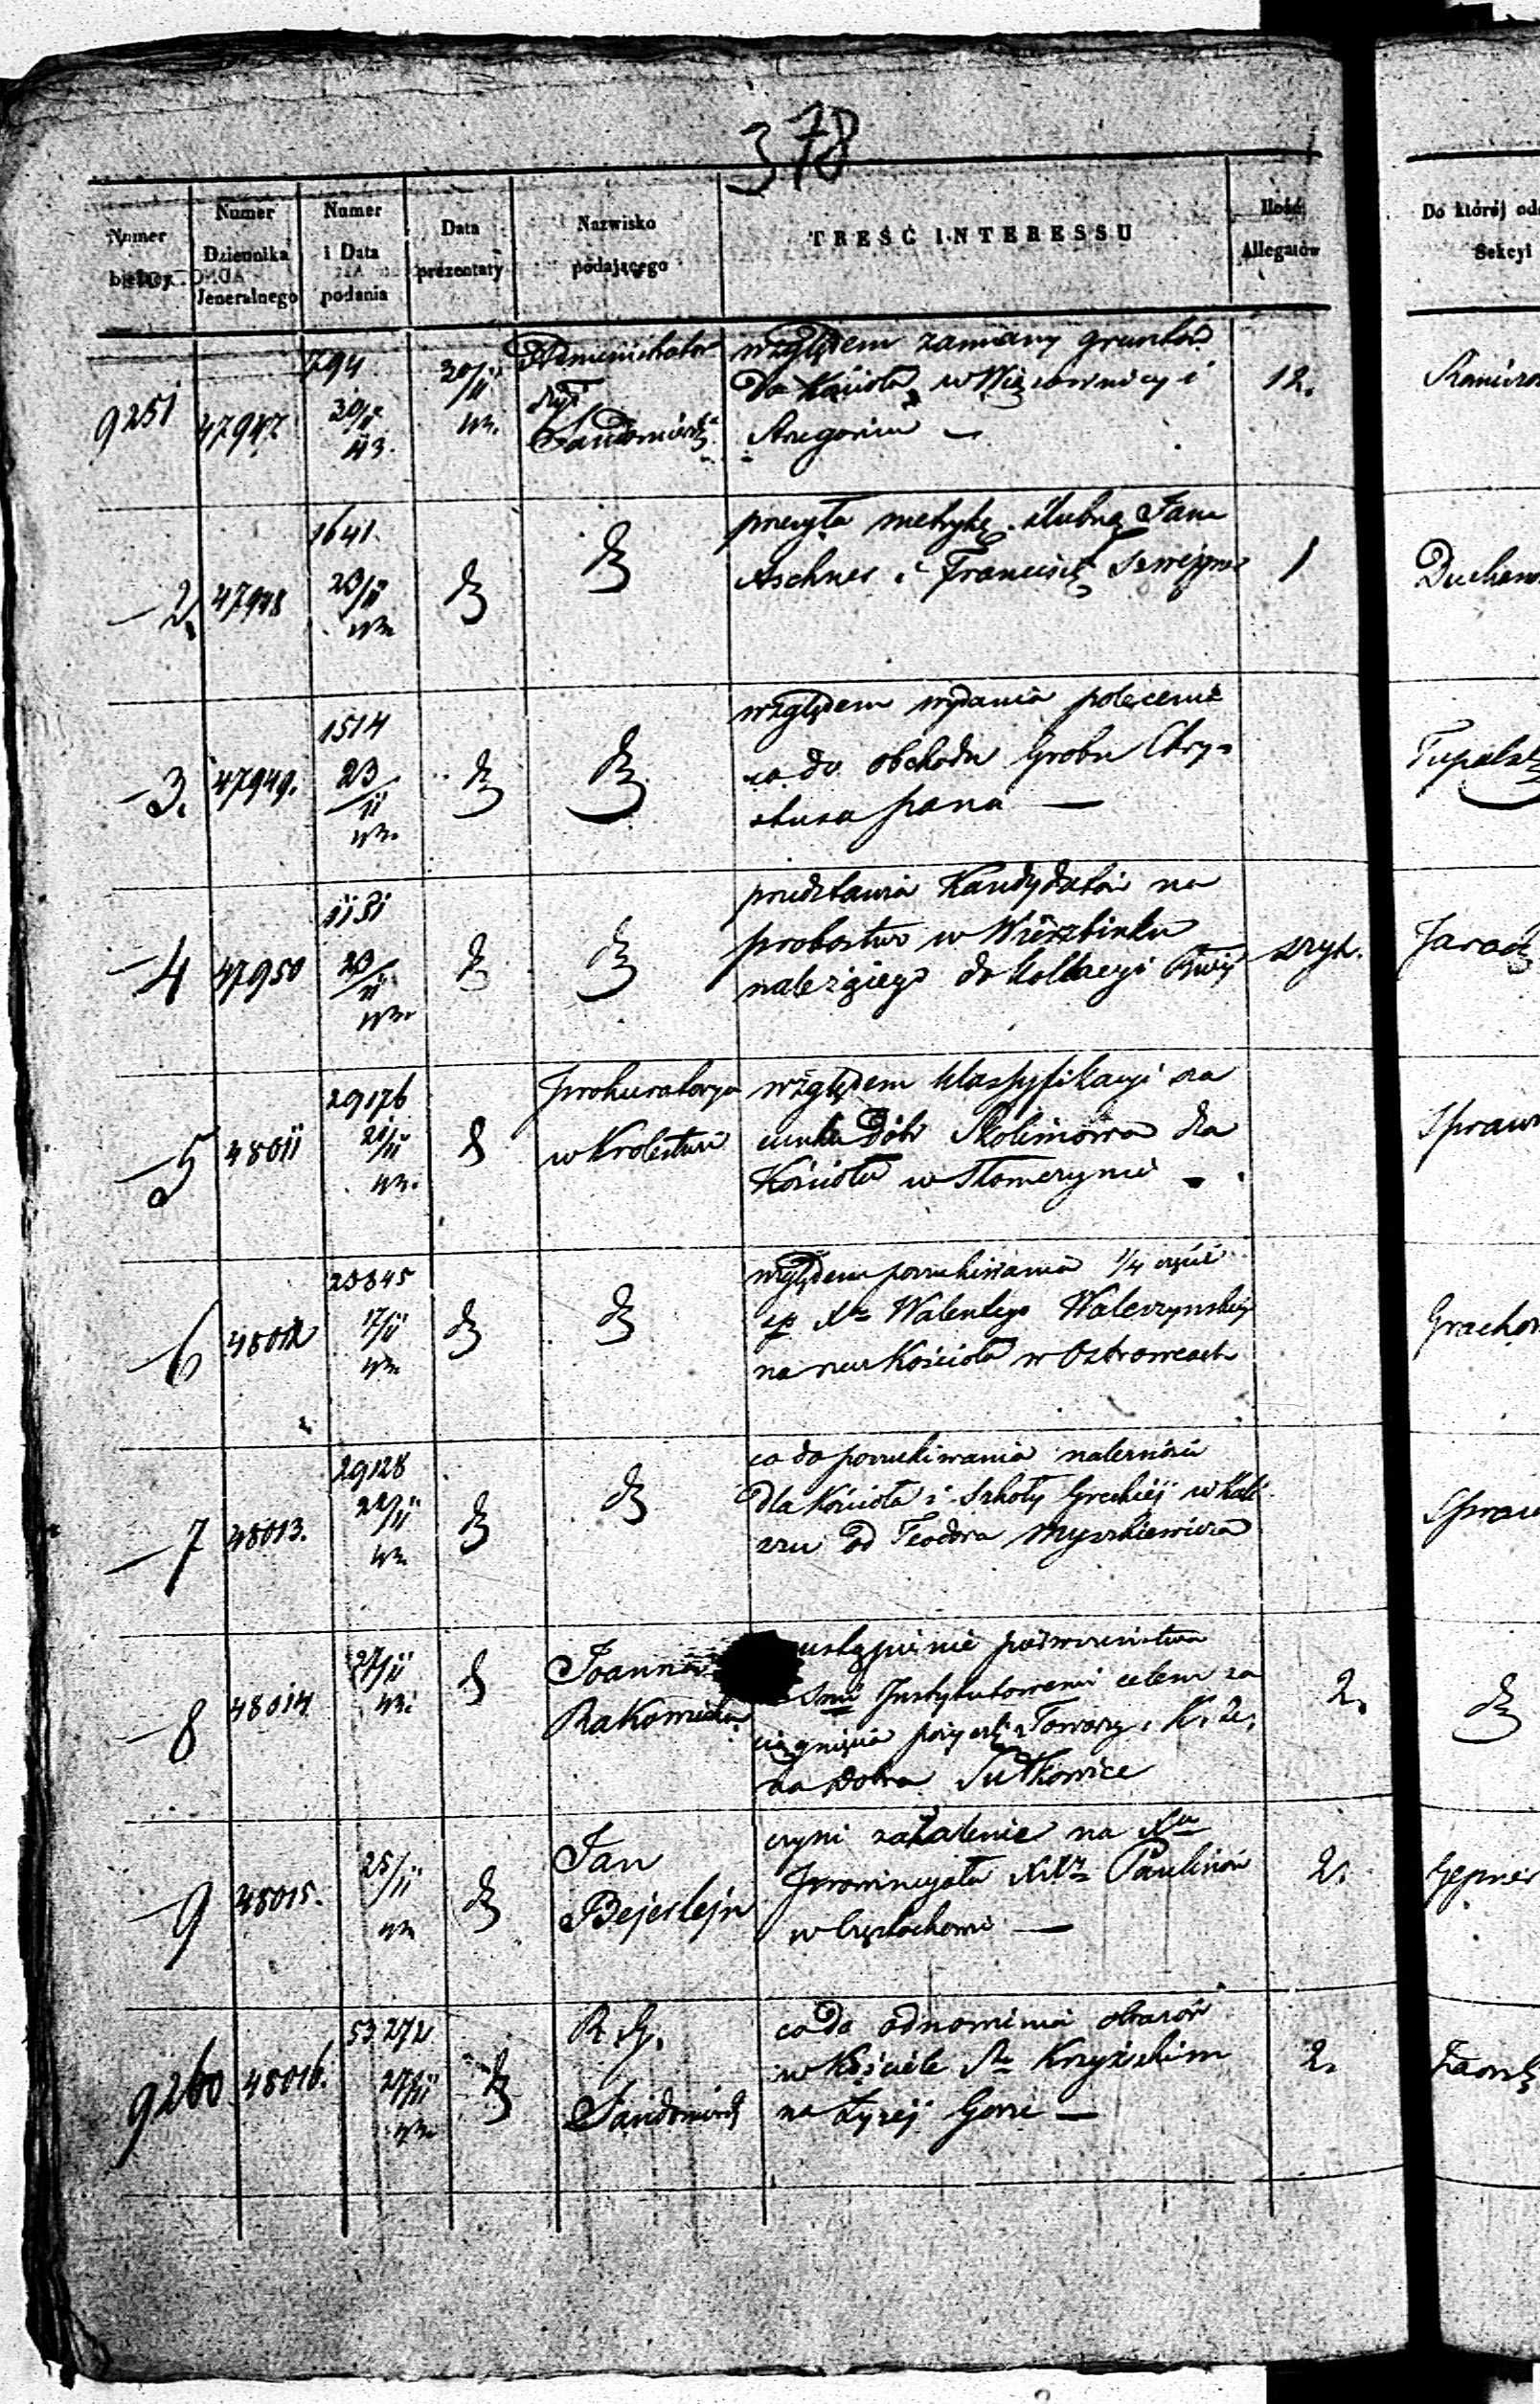 378
Numer bieżący
Numer Dziennika Jeneralnego
Numer i Data podania
Data prezentaty
Nazwisko podającego
TREŚĆ INTERESSU
Ilość Allegatów
Do której od
Sekcyi
9251 47947 794 30/11 43. 30/11 43. Administrator Dyi Sandomirsk
względem zamiany gruntów
do Kościoła w i
12.
—2. 47948 1641 23/11 43
przesyła metrykę ślubną Jana
Aschner i Francisz
1
—3. 47949. 1514 23/11 43.
względem wydania polecenia
co do obchodu Grobu Chry-
stusa pana —
—4 47950 23/11 43.
przedstawia Kandydatów na
probostwo w Wierzbinku
należącego do kollacyi
szyk.
Jarock
—5 48011 29176 21/11 43. Prokuratorya w Królestwie
względem klassyfikacyi sza
cunku Dóbr Skolimowa dla
Kościoła w Słomczynie —
—6 48012 28345 17/11 43
względem poszukiwania 1/4 części
sp Xa Walentego Walerzynskieg
na rzecz Kościoła w Ostrowcach
—7 48013. 29128 22/11 43.
co do poszukiwania należności
dla Kościoła i Szkoły Greckiéj w Kali
szu od Teodora Myszkiewicza
—8 48014 27/11 43. Joanna Rakowiecka
ustąpienie pierwszeństwa
Instytutowemi celem za
ciągnięcia pożyczki Towarz. K. Z.
na Dobra Sułkowice
2.
—9 48015. 25/11 43 Jan Bejerlejn
czyni zażalenie na Xa
Prowincyała XXz Paulinów
w Częstochowie —
2.
9260 48016. 53272 27/11 43 R. G. Sandomirsk
co do odnowienia obrazów
w Kościele Sto Krzyżskim
na Łyséj Górze —
2.